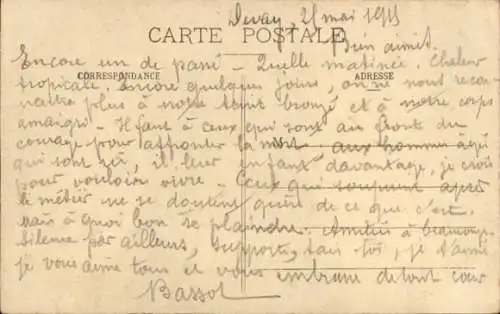 Douay, 25 mai 1915
CARTE POSTALE
Bien aimée.
Encore un de passé – Quelle matinée. Chaleur
CORRESPONDANCE
ADRESSE
tropicale. Encore quelques jours, on ne nous recon-
naîtra plus à notre teint bronzé et à notre corps
amaigri – Il faut à ceux qui sont au front du
courage pour affronter la mort aux hommes
qui sont ici, il leur en faut davantage, je crois
pour vouloir vivre – Ceux qui
le métier ne se doutent guère de ce que c'est.
Mais à quoi bon se plaindre. Amitiés à beaucoup,
Silence par ailleurs, supporte, tais toi, je t'aime
je vous aime tous et vous embrasse de tout cœur
Bassol